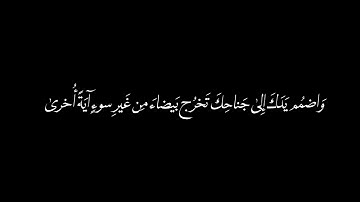 وَاضمُم يَدَكَ إِلىٰ جَناحِكَ تَخرُج بَيضاءَ مِن غَيرِ سوءٍ آيَةً أُخرىٰ